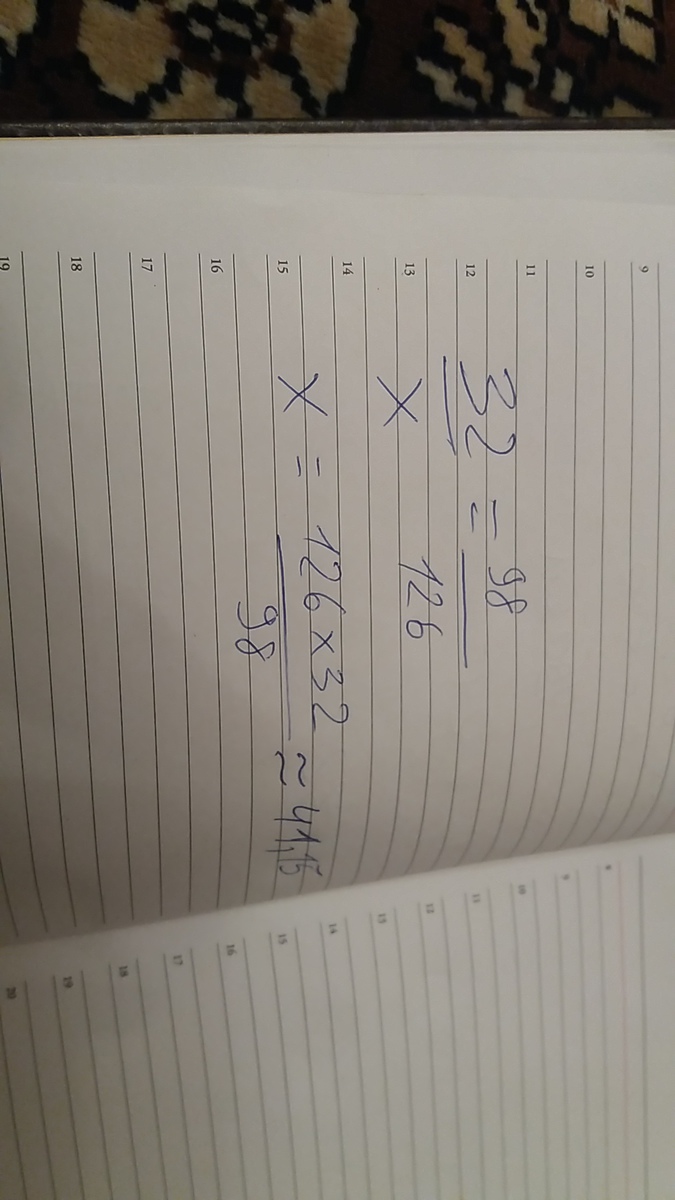 9
10
11
12
13
14
15
16
17
18
19
32 = 98
x 126
x = 126 x 32 ≈ 41,15
98
8
9
10
11
12
13
14
15
16
17
18
19
20